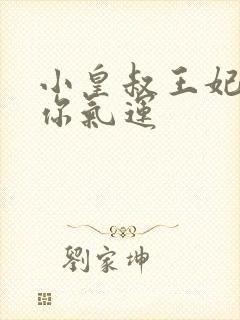 小皇叔王妃
你氣運
劉家坤